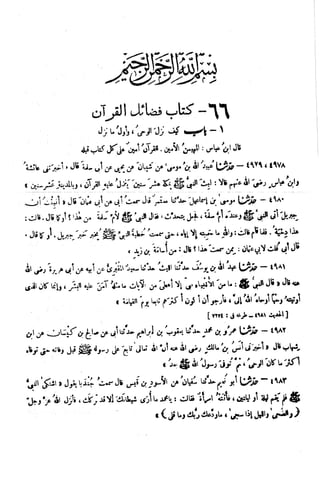 بسم الله الرحمن الرحيم
٦٦- كتاب فضائل القرآن
١ - باب كيف نزل الوحي، وأول ما نزل
قال ابن عباس: المهيمن الأمين. القرآن أمين على كل كتاب قبله
٤٩٧٨، ٤٩٧٩ - حدثنا عبيد الله بن موسى عن شيبان عن يحيى عن أبي سلمة قال: أخبرتني عائشة
وابن عباس رضي الله عنهم قالا: لبث النبي ﷺ بمكة عشر سنين ينزل عليه القرآن، وبالمدينة عشر سنين
٤٩٨٠ - حدثنا موسى بن إسماعيل حدثنا معتمر قال سمعت أبي عن أبي عثمان قال «أنبئت أن
جبريل أتى النبي ﷺ وعنده أم سلمة، فجعل يتحدث، فقال النبي ﷺ لأم سلمة: من هذا؟ أو كما قال. قالت:
هذا دحية. فلما قام قالت: والله ما حسبته إلا إياه، حتى سمعت خطبة النبي ﷺ يخبر خبر جبريل، أو كما قال.
قال أبي قلت لأبي عثمان: ممن سمعت هذا؟ قال: من أسامة بن زيد»
٤٩٨١ - حدثنا عبد الله بن يوسف حدثنا الليث حدثنا سعيد المقبري عن أبيه عن أبي هريرة رضي الله
عنه قال «قال النبي ﷺ: ما من الأنبياء نبي إلا أعطي من الآيات ما مثله آمن عليه البشر، وإنما كان الذي
أوتيته وحيا أوحاه الله إلي، فأرجو أن أكون أكثرهم تابعا يوم القيامة»
[الحديث ٤٩٨١ - طرفه في: ٧٢٧٤]
٤٩٨٢ - حدثنا عمرو بن محمد حدثنا يعقوب بن إبراهيم حدثنا أبي عن صالح بن كيسان عن ابن
شهاب قال «أخبرني أنس بن مالك رضي الله عنه أن الله تعالى تابع على رسوله ﷺ قبل وفاته حتى توفاه
أكثر ما كان الوحي، ثم توفي رسول الله ﷺ بعد»
٤٩٨٣ - حدثنا أبو نعيم حدثنا سفيان عن الأسود بن قيس قال سمعت جندبا يقول «اشتكى النبي ﷺ
فلم يقم ليلة أو ليلتين، فأتته امرأة فقالت: يا محمد ما أرى شيطانك إلا قد تركك، فأنزل الله عز وجل
﴿والضحى والليل إذا سجى، ما ودعك ربك وما قلى﴾»